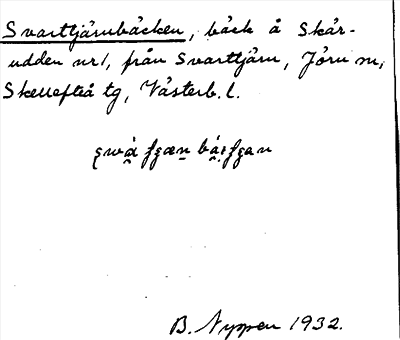 Svarttjärnbäcken, bäck å Skär-
udden nr 1, från Svarttjärn, Jörn sn,
Skellefteå tg, Västerb. l.
B. Nyppen 1932.